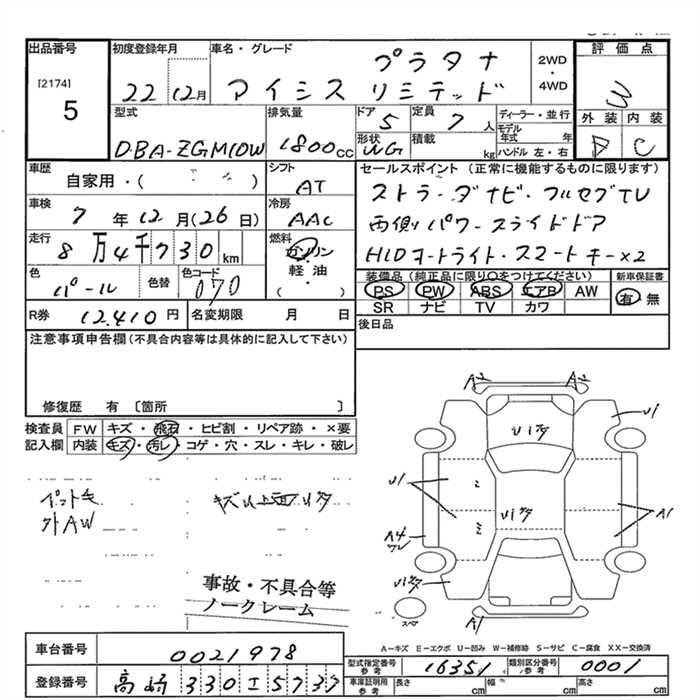 出品番号 初度登録年月 車名・グレード 評価点
[2174] プラタナ 2WD・4WD
5 22 12月 アイシス リミテッド 3
型式 排気量 ドア 定員 ディーラー・並行 外装 内装
DBA-ZGM10W 1800cc 5 7人 モデル年式 年 D C
形状 WG 積載 kg ハンドル 左・右
車歴 シフト セールスポイント (正常に機能するものに限ります)
自家用・( ) AT ストラーダナビ・フルセグTV
車検 冷房 両側パワースライドドア
7年12月(26日) AAC HIDオートライト・スマートキー×2
走行 燃料
8万4千730km ガソリン・軽油・( )
色 色替 色コード 装備品(純正品に限り○をつけてください) 新車保証書
パール 070 PS PW ABS エアB AW 有 無
SR ナビ TV カワ
R券 12.410円 名変期限 月 日 後日品
注意事項申告欄(不具合内容等は具体的に記入して下さい)
修復歴 有 〔箇所 〕
検査員 FW キズ・飛石・ヒビ割・リペア跡・×要
記入欄 内装 キズ・汚レ・コゲ・穴・スレ・キレ・破レ
A2 A2
U1
U1キズ
U1 U1キズ A1
A4
U1キズ
A1
スペ
ペット毛
外AW
事故・不具合等
ノークレーム
A-キズ E-エクボ U-凹み W-補修跡 S-サビ C-腐食 XX-交換済
車台番号 0021978
型式指定番号 参考 16351 類別区分番号 参考 0001
登録番号 高崎 330 エ 5737
車庫証明用 参考 長さ cm 幅 cm 高さ cm